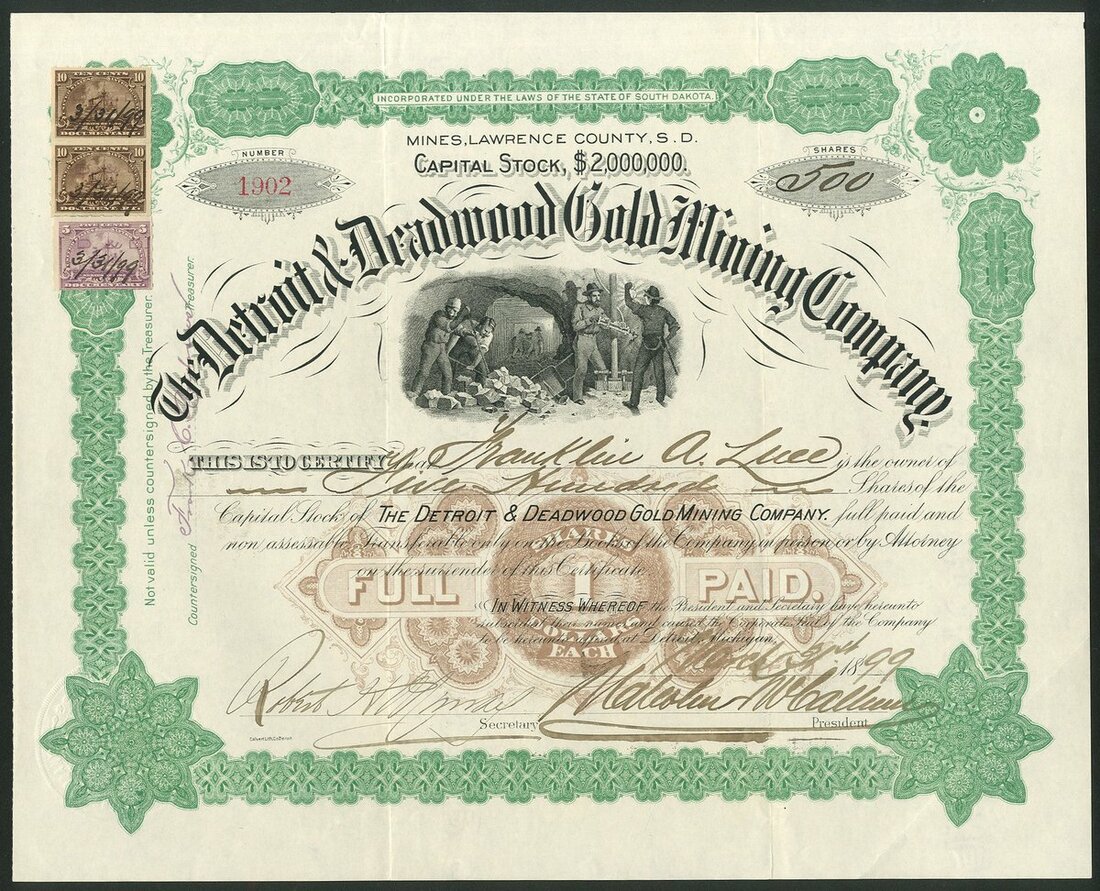 10 TEN CENTS 10
3/31/99
DOCUMENTARY
10 10
3/31/99
DOCUMENTARY
5 FIVE CENTS 5
3/31/99
DOCUMENTARY
INCORPORATED UNDER THE LAWS OF THE STATE OF SOUTH DAKOTA.
MINES, LAWRENCE COUNTY, S. D.
CAPITAL STOCK, $2,000,000.
NUMBER
1902
SHARES
500
The Detroit & Deadwood Gold Mining Company.
Not valid unless countersigned by the Treasurer.
Countersigned Treasurer.
THIS IS TO CERTIFY that Franklin A. Luce is the owner of
Five Hundred Shares of the
Capital Stock of THE DETROIT & DEADWOOD GOLD MINING COMPANY. full paid and
non assessable. Transferable only on the Books of the Company in person or by Attorney
on the surrender of this Certificate.
SHARES
$1
FULL PAID.
EACH
IN WITNESS WHEREOF the President and Secretary have hereunto
subscribed their names and caused the Corporate Seal of the Company
to be hereunto affixed at Detroit, Michigan,
March 1899
Robert
Secretary
Malcolm McCallum
President
Calvert Lith. Co. Detroit.